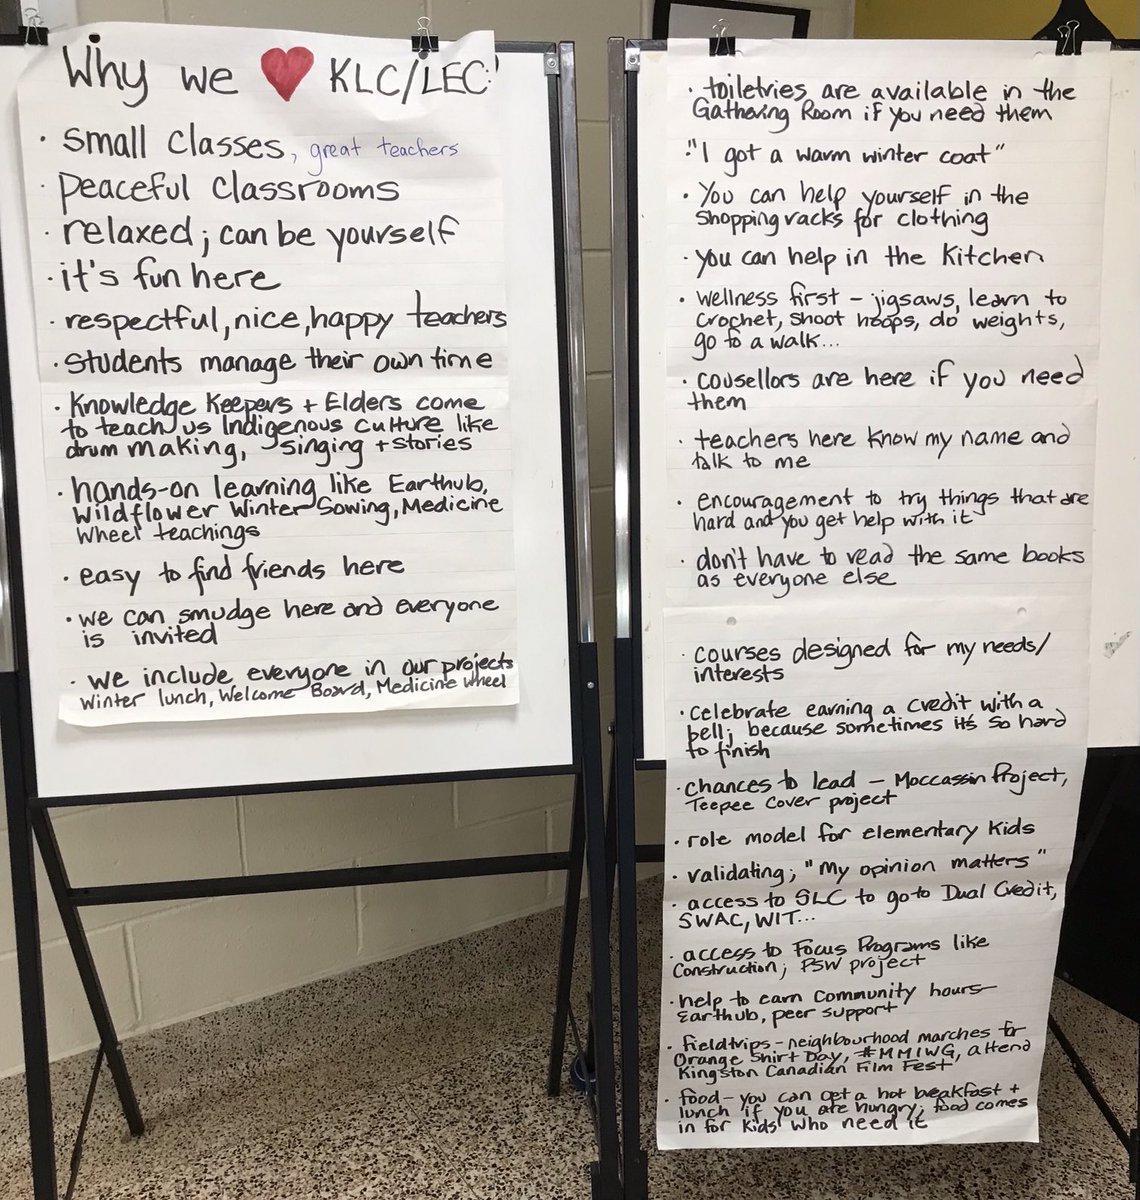 Why we ❤ KLC/LEC!
· small classes, great teachers
· peaceful classrooms
· relaxed; can be yourself
· it's fun here
· respectful, nice, happy teachers
· students manage their own time
· Knowledge Keepers + Elders come
to teach us Indigenous culture like
drum making, singing + stories
· hands-on learning like Earthub,
Wildflower Winter Sowing, Medicine
Wheel teachings
· easy to find friends here
· we can smudge here and everyone
is invited
· we include everyone in our projects
Winter lunch, Welcome Board, Medicine Wheel
· toiletries are available in the
Gathering Room if you need them
· "I got a warm winter coat"
· You can help yourself in the
shopping racks for clothing
· you can help in the Kitchen
· wellness first - jigsaws, learn to
crochet, shoot hoops, do weights,
go fo a walk...
· cousellors are here if you need
them
· teachers here know my name and
talk to me
· encouragement to try things that are
hard and you get help with it
· don't have to read the same books
as everyone else
· courses designed for my needs/
interests
· celebrate earning a credit with a
bell; because sometimes it's so hard
to finish
· chances to lead - Moccassin Project,
Teepee Cover project
· role model for elementary kids
· validating; "My opinion matters"
· access to SLC to go to Dual Credit,
SWAC, WIT...
· access to Focus Programs like
Construction; PSW project
· help to earn Community hours-
Earthub, peer support
· fieldtrips - neighbourhood marches for
Orange Shirt Day, #MMIWG, attend
Kingston Canadian Film Fest
· food - you can get a hot breakfast +
lunch if you are hungry; food comes
in for kids who need it